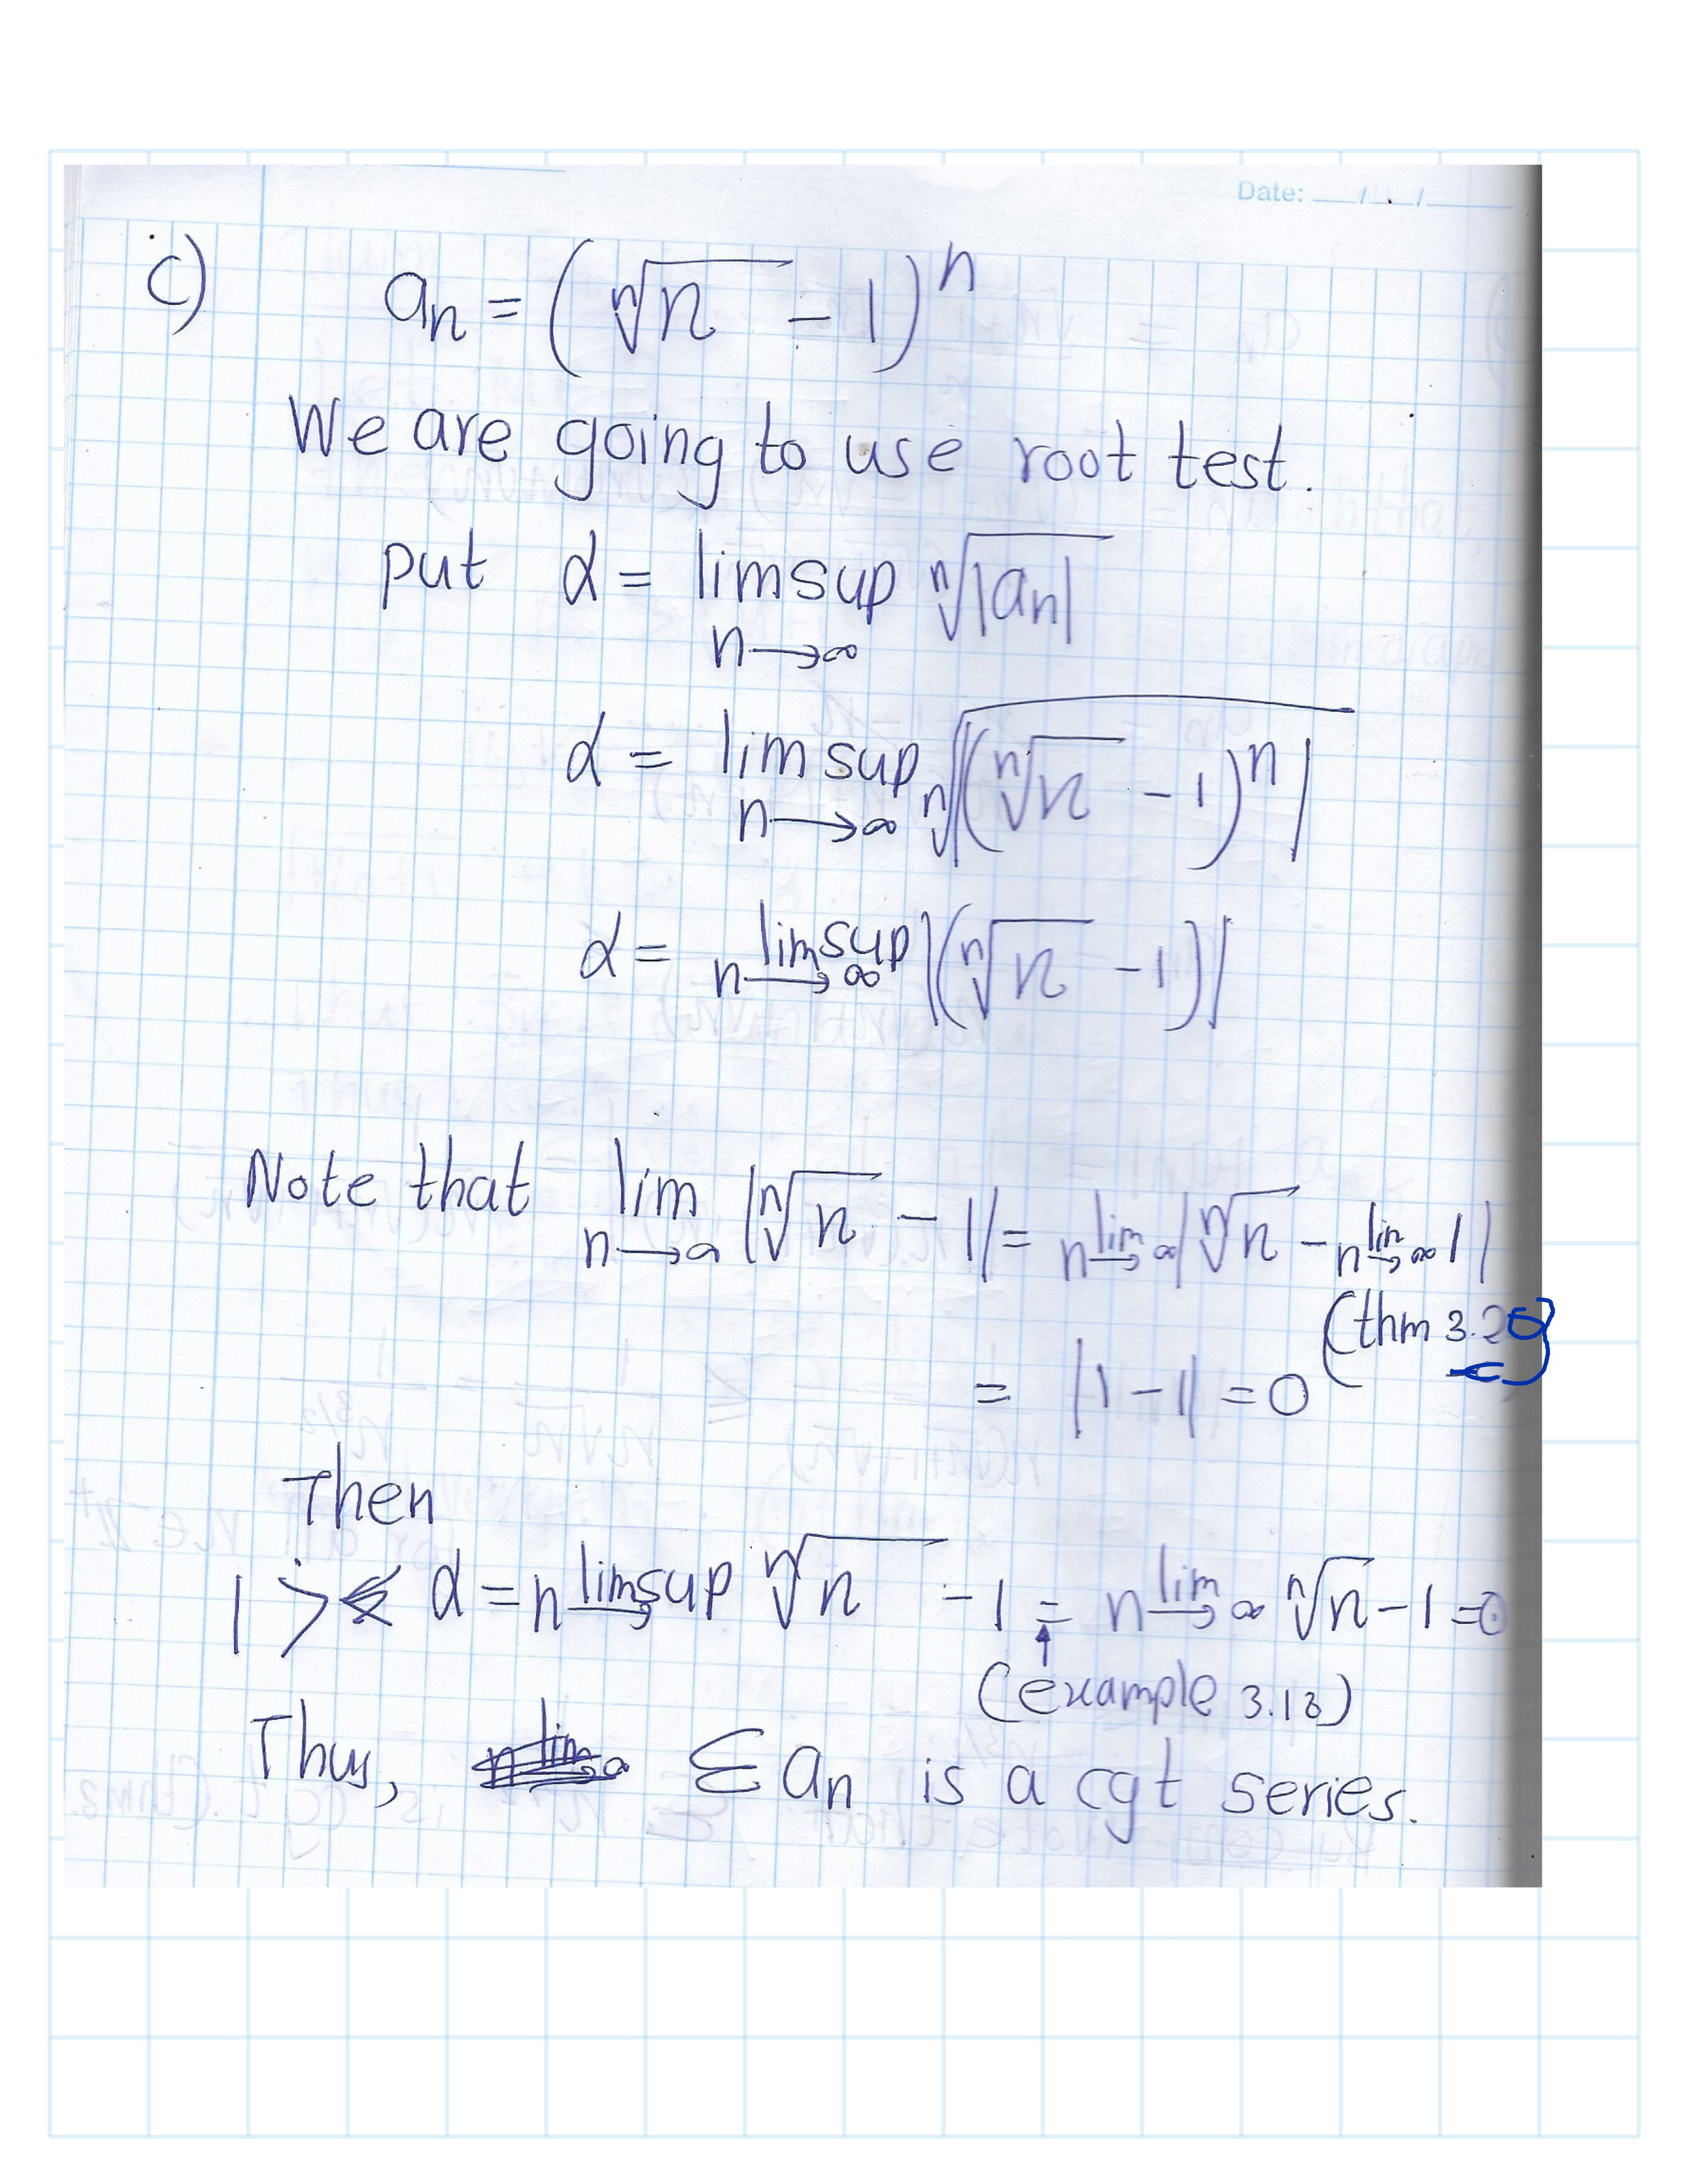 Date: __/__/__
c) aₙ = (ⁿ√n - 1)ⁿ
We are going to use root test.
put α = limsup n→∞ ⁿ√|aₙ|
α = lim sup n→∞ ⁿ√|(ⁿ√n - 1)ⁿ|
α = limsup n→∞ |(ⁿ√n - 1)|
Note that lim n→∞ |ⁿ√n - 1| = lim n→∞ |ⁿ√n - lim n→∞ 1|
(thm 3.20)
= |1 - 1| = 0
Then
1 > α = limsup n→ ⁿ√n - 1 = lim n→∞ ⁿ√n - 1 = 0
(example 3.18)
Thus, Σ aₙ is a cgt series.